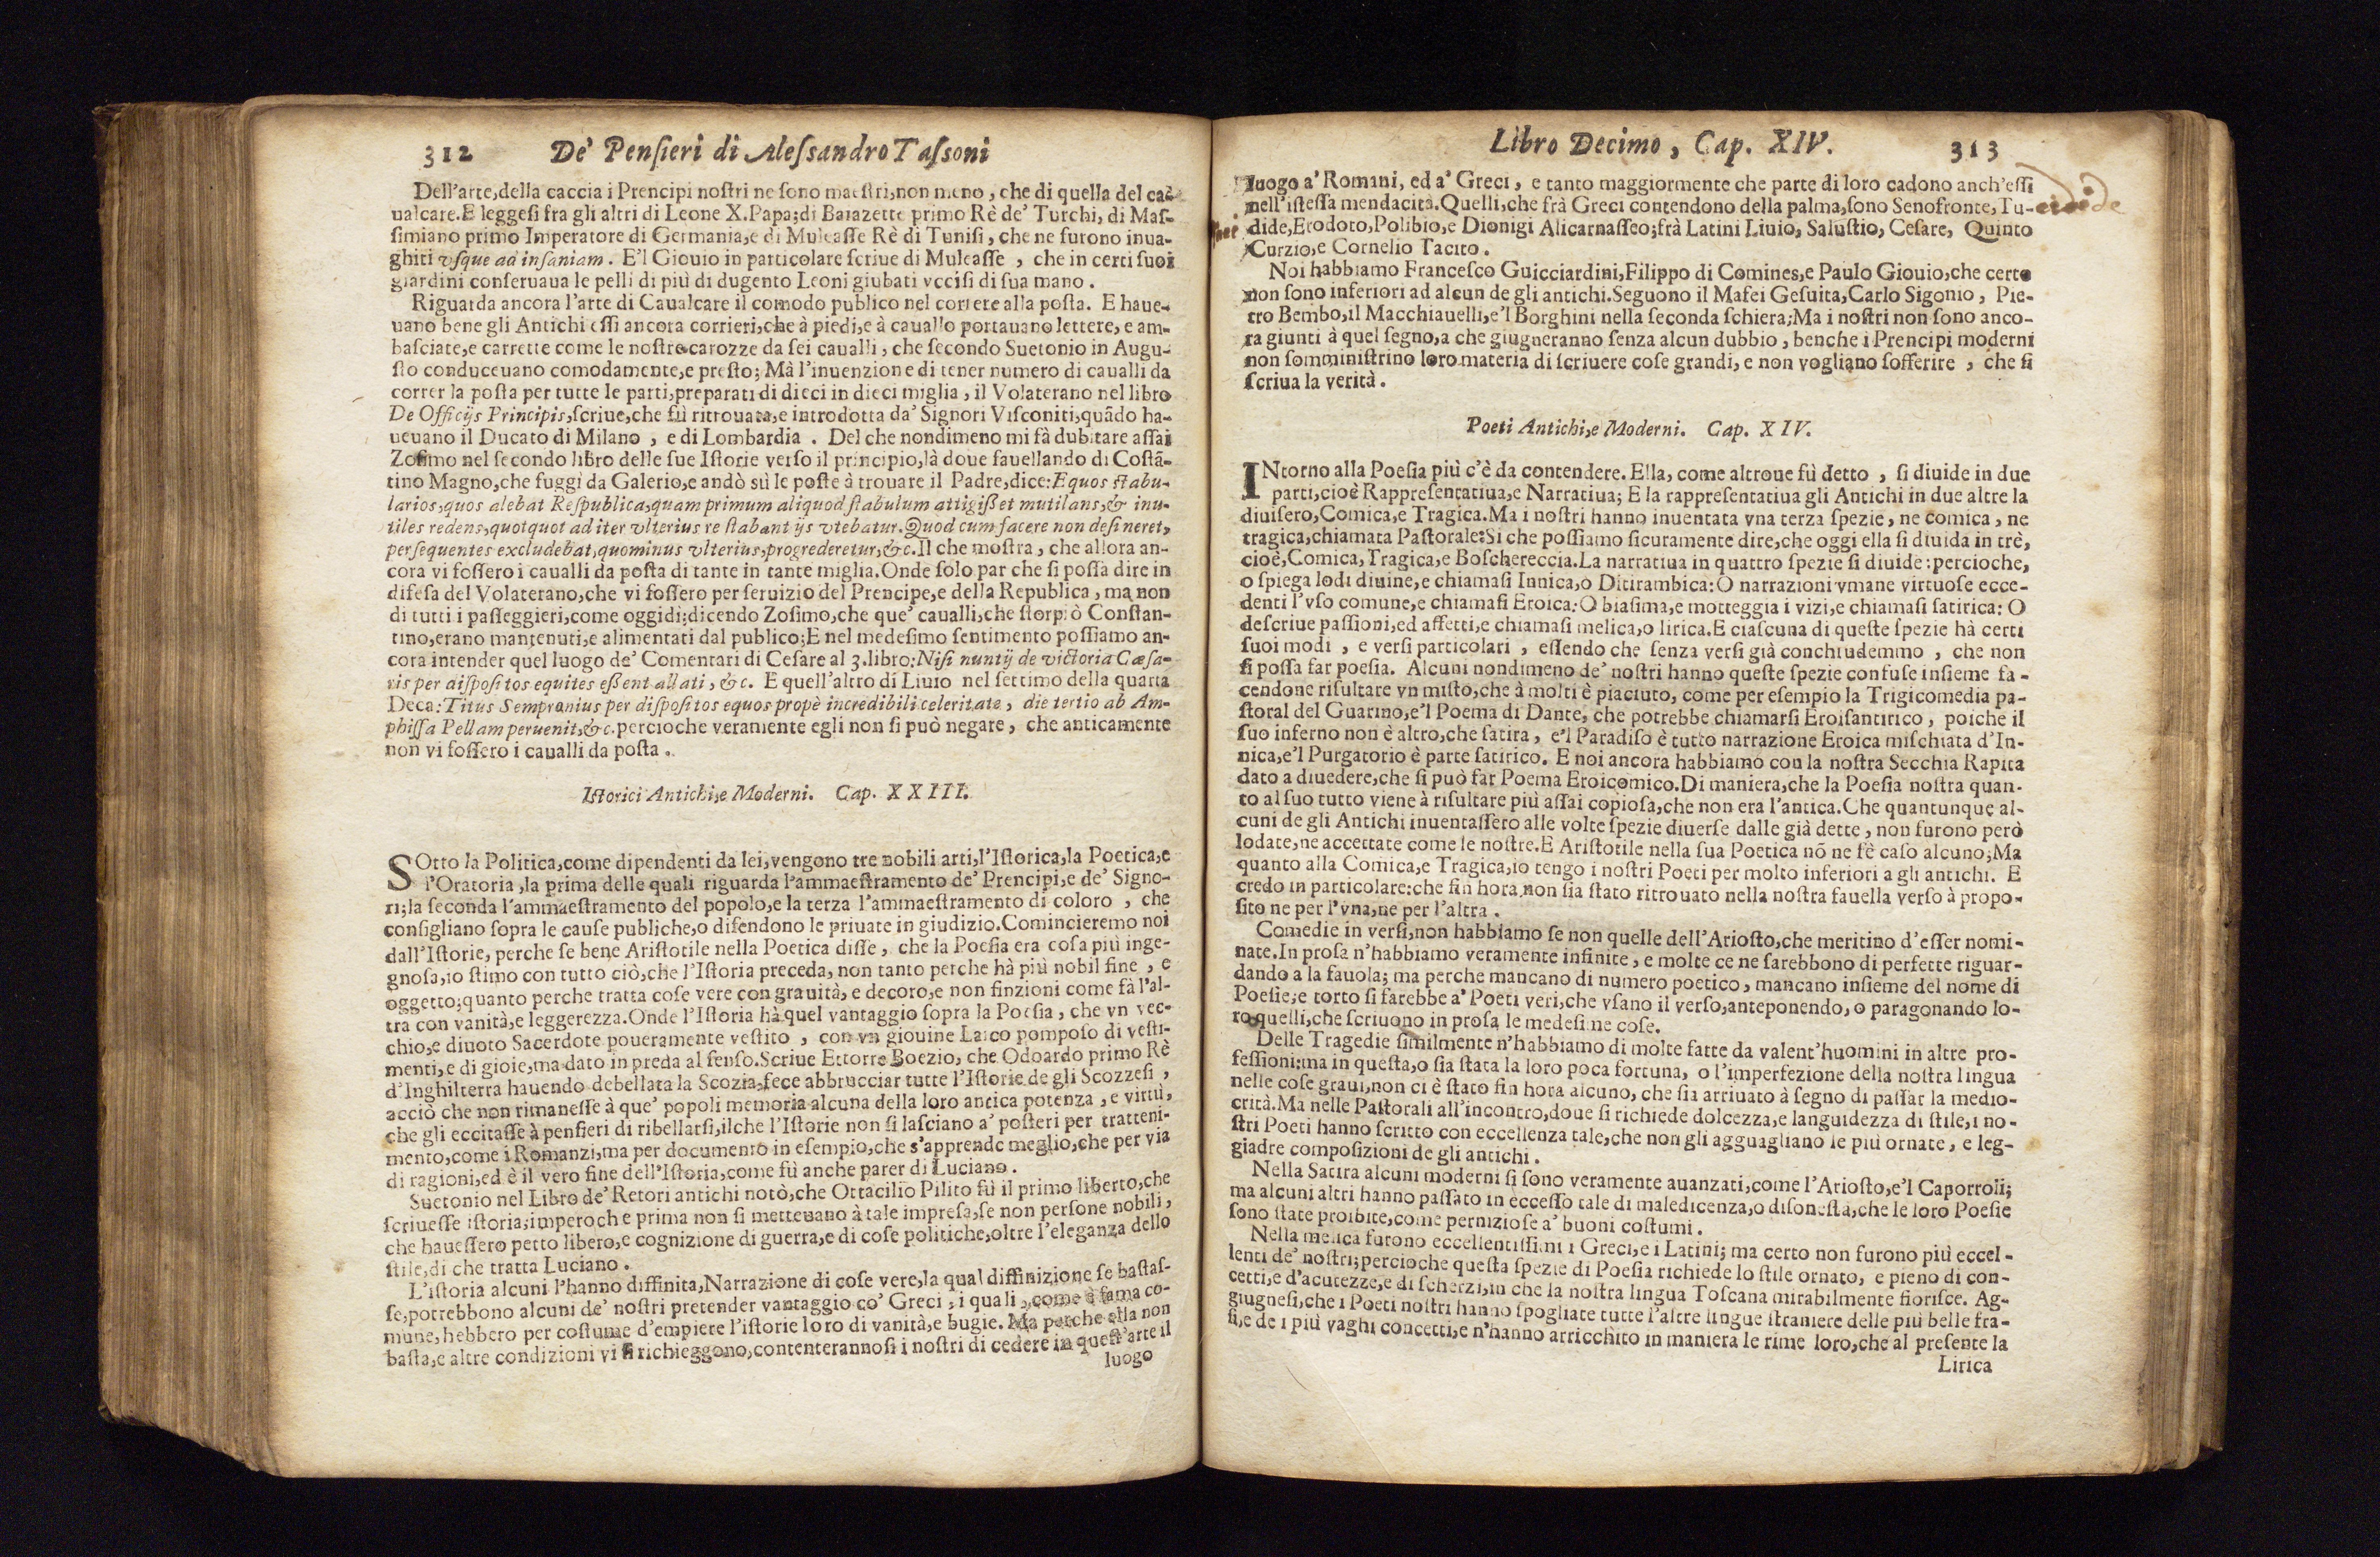 312 De' Penſieri di Aleſſandro Taſſoni
Dell'arte,della caccia i Prencipi noſtri ne ſono maeſtri,non meno, che di quella del ca-
ualcare.E leggeſi fra gli altri di Leone X.Papa;di Baiazette primo Rè de' Turchi, di Maſ-
ſimiano primo Imperatore di Germania,e di Muleaſſe Rè di Tuniſi, che ne furono inua-
ghiti vſque ad inſaniam. E'l Giouio in particolare ſcriue di Muleaſſe, che in certi ſuoi
giardini conſeruaua le pelli di più di dugento Leoni giubati vcciſi di ſua mano.
Riguarda ancora l'arte di Caualcare il comodo publico nel correre alla poſta. E haue-
uano bene gli Antichi eſſi ancora corrieri,che à piedi,e à cauallo portauano lettere, e am-
baſciate,e carrette come le noſtre carozze da ſei caualli, che ſecondo Suetonio in Augu-
ſto conduceuano comodamente,e preſto; Mà l'inuenzione di tener numero di caualli da
correr la poſta per tutte le parti,preparati di dieci in dieci miglia, il Volaterano nel libro
De Officijs Principis,ſcriue,che fù ritrouata,e introdotta da' Signori Viſconiti,quādo ha-
ueuano il Ducato di Milano, e di Lombardia. Del che nondimeno mi fà dubitare aſſai
Zoſimo nel ſecondo libro delle ſue Iſtorie verſo il principio,là doue fauellando di Coſtā-
tino Magno,che fuggì da Galerio,e andò sù le poſte à trouare il Padre,dice:Equos ſtabu-
larios,quos alebat Reſpublica,quam primum aliquod ſtabulum attigißet mutilans,& inu-
tiles redens,quotquot ad iter vlterius re ſtabant ijs vtebatur.Quod cum facere non deſineret,
perſequentes excludebat,quominus vlterius,progrederetur,&c.Il che moſtra, che allora an-
cora vi foſſero i caualli da poſta di tante in tante miglia.Onde ſolo par che ſi poſſa dire in
difeſa del Volaterano,che vi foſſero per ſeruizio del Prencipe,e della Republica, ma non
di tutti i paſſeggieri,come oggidì;dicendo Zoſimo,che que' caualli,che ſtorpiò Conſtan-
tino,erano mantenuti,e alimentati dal publico;E nel medeſimo ſentimento poſſiamo an-
cora intender quel luogo de' Comentari di Ceſare al 3.libro:Niſi nuntij de victoria Cæſa-
ris per diſpoſitos equites eßent allati, &c. E quell'altro di Liuio nel ſettimo della quarta
Deca:Titus Sempronius per diſpoſitos equos propè incredibili celeritate, die tertio ab Am-
phiſſa Pellam peruenit,&c.percioche veramente egli non ſi può negare, che anticamente
non vi foſſero i caualli da poſta.
Iſtorici Antichi,e Moderni. Cap. XXIII.
SOtto la Politica,come dipendenti da lei,vengono tre nobili arti,l'Iſtorica,la Poetica,e
l'Oratoria,la prima delle quali riguarda l'ammaeſtramento de' Prencipi,e de' Signo-
ri;la ſeconda l'ammaeſtramento del popolo,e la terza l'ammaeſtramento di coloro, che
conſigliano ſopra le cauſe publiche,o difendono le priuate in giudizio.Comincieremo noi
dall'Iſtorie, perche ſe bene Ariſtotile nella Poetica diſſe, che la Poeſia era coſa più inge-
gnoſa,io ſtimo con tutto ciò,che l'Iſtoria preceda, non tanto perche hà più nobil fine, e
oggetto;quanto perche tratta coſe vere con grauità, e decoro,e non finzioni come fà l'al-
tra con vanità,e leggerezza.Onde l'Iſtoria hà quel vantaggio ſopra la Poeſia, che vn vec-
chio,e diuoto Sacerdote poueramente veſtito, con vn giouine Laico pompoſo di veſti-
menti,e di gioie,ma dato in preda al ſenſo.Scriue Ettorre Boezio, che Odoardo primo Rè
d'Inghilterra hauendo debellata la Scozia,fece abbrucciar tutte l'Iſtorie de gli Scozzeſi,
acciò che non rimaneſſe à que' popoli memoria alcuna della loro antica potenza, e virtù,
che gli eccitaſſe à penſieri di ribellarſi,ilche l'Iſtorie non ſi laſciano a' poſteri per tratteni-
mento,come i Romanzi,ma per documento in eſempio,che s'apprende meglio,che per via
di ragioni,ed è il vero fine dell'Iſtoria,come fù anche parer di Luciano.
Suetonio nel Libro de' Retori antichi notò,che Ottacilio Pilito fù il primo liberto,che
ſcriueſſe iſtoria;imperoche prima non ſi metteuano à tale impreſa,ſe non perſone nobili,
che haueſſero petto libero,e cognizione di guerra,e di coſe politiche,oltre l'eleganza dello
ſtile,di che tratta Luciano.
L'iſtoria alcuni l'hanno diffinita,Narrazione di coſe vere,la qual diffinizione ſe baſtaſ-
ſe,potrebbono alcuni de' noſtri pretender vantaggio co' Greci, i quali, come è fama co-
mune, hebbero per coſtume d'empiere l'iſtorie loro di vanità,e bugie. Ma perche ella non
baſta,e altre condizioni vi ſi richieggono,contenterannoſi i noſtri di cedere in queſt'arte il
luogo
Libro Decimo, Cap. XIV. 313
luogo a' Romani, ed a' Greci, e tanto maggiormente che parte di loro cadono anch'eſſi
nell'iſteſſa mendacità.Quelli,che frà Greci contendono della palma,ſono Senofronte,Tu-
dide,Erodoto,Polibio,e Dionigi Alicarnaſſeo;frà Latini Liuio, Saluſtio, Ceſare, Quinto
Curzio,e Cornelio Tacito.
Noi habbiamo Franceſco Guicciardini,Filippo di Comines,e Paulo Giouio,che certo
non ſono inferiori ad alcun de gli antichi.Seguono il Mafei Geſuita,Carlo Sigonio, Pie-
tro Bembo,il Macchiauelli,e'l Borghini nella ſeconda ſchiera;Ma i noſtri non ſono anco-
ra giunti à quel ſegno,a che giugneranno ſenza alcun dubbio, benche i Prencipi moderni
non ſomminiſtrino loro materia di ſcriuere coſe grandi, e non vogliano ſofferire, che ſi
ſcriua la verità.
Poeti Antichi,e Moderni. Cap. XIV.
INtorno alla Poeſia più c'è da contendere. Ella, come altroue fù detto, ſi diuide in due
parti,cioè Rappreſentatiua,e Narratiua; E la rappreſentatiua gli Antichi in due altre la
diuiſero,Comica,e Tragica.Ma i noſtri hanno inuentata vna terza ſpezie, ne comica, ne
tragica,chiamata Paſtorale:Si che poſſiamo ſicuramente dire,che oggi ella ſi diuida in trè,
cioè,Comica, Tragica,e Boſchereccia.La narratiua in quattro ſpezie ſi diuide:percioche,
o ſpiega lodi diuine,e chiamaſi Innica,o Ditirambica:O narrazioni vmane virtuoſe ecce-
denti l'vſo comune,e chiamaſi Eroica:O biaſima,e motteggia i vizi,e chiamaſi ſatirica: O
deſcriue paſſioni,ed affetti,e chiamaſi melica,o lirica.E ciaſcuna di queſte ſpezie hà certi
ſuoi modi, e verſi particolari, eſſendo che ſenza verſi già conchiudemmo, che non
ſi poſſa far poeſia. Alcuni nondimeno de' noſtri hanno queſte ſpezie confuſe inſieme fa-
cendone riſultare vn miſto,che à molti è piaciuto, come per eſempio la Trigicomedia pa-
ſtoral del Guarino,e'l Poema di Dante, che potrebbe chiamarſi Eroiſantirico, poiche il
ſuo inferno non è altro,che ſatira, e'l Paradiſo è tutto narrazione Eroica miſchiata d'In-
nica,e'l Purgatorio è parte ſatirico. E noi ancora habbiamo con la noſtra Secchia Rapita
dato a diuedere,che ſi può far Poema Eroicomico.Di maniera,che la Poeſia noſtra quan-
to al ſuo tutto viene à riſultare più aſſai copioſa,che non era l'antica.Che quantunque al-
cuni de gli Antichi inuentaſſero alle volte ſpezie diuerſe dalle già dette, non furono però
lodate,ne accettate come le noſtre.E Ariſtotile nella ſua Poetica nō ne fè caſo alcuno;Ma
quanto alla Comica,e Tragica,io tengo i noſtri Poeti per molto inferiori a gli antichi. E
credo in particolare:che fin hora non ſia ſtato ritrouato nella noſtra fauella verſo à propo-
ſito ne per l'vna,ne per l'altra.
Comedie in verſi,non habbiamo ſe non quelle dell'Arioſto,che meritino d'eſſer nomi-
nate.In proſa n'habbiamo veramente infinite, e molte ce ne ſarebbono di perfette riguar-
dando a la fauola; ma perche mancano di numero poetico, mancano inſieme del nome di
Poeſie;e torto ſi farebbe a' Poeti veri,che vſano il verſo,anteponendo, o paragonando lo-
ro quelli,che ſcriuono in proſa le medeſime coſe.
Delle Tragedie ſimilmente n'habbiamo di molte fatte da valent'huomini in altre pro-
feſſioni:ma in queſta,o ſia ſtata la loro poca fortuna, o l'imperfezione della noſtra lingua
nelle coſe graui,non ci è ſtato fin hora alcuno, che ſia arriuato à ſegno di paſſar la medio-
crità.Ma nelle Paſtorali all'incontro,doue ſi richiede dolcezza,e languidezza di ſtile,i no-
ſtri Poeti hanno ſcritto con eccellenza tale,che non gli agguagliano le più ornate, e leg-
giadre compoſizioni de gli antichi.
Nella Satira alcuni moderni ſi ſono veramente auanzati,come l'Arioſto,e'l Caporroli;
ma alcuni altri hanno paſſato in ecceſſo tale di maledicenza,o diſoneſtà,che le loro Poeſie
ſono ſtate proibite,come pernizioſe a' buoni coſtumi.
Nella melica furono eccellentiſſimi i Greci,e i Latini; ma certo non furono più eccel-
lenti de' noſtri;percioche queſta ſpezie di Poeſia richiede lo ſtile ornato, e pieno di con-
cetti,e d'acutezze,e di ſcherzi,in che la noſtra lingua Toſcana mirabilmente fioriſce. Ag-
giugneſi,che i Poeti noſtri hanno ſpogliate tutte l'altre lingue ſtraniere delle più belle fra-
ſi,e de i più vaghi concetti,e n'hanno arricchito in maniera le rime loro,che al preſente la
Lirica